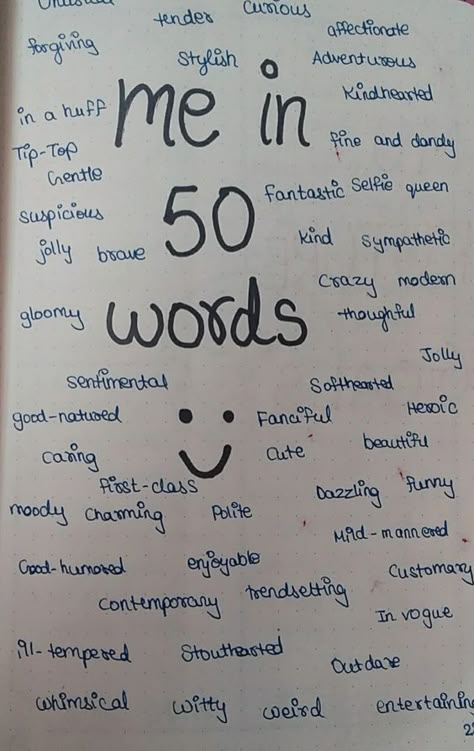 Unusual
tender Curious
forgiving affectionate
Stylish Adventurous
in a huff me in Kindhearted
Tip-Top fine and dandy
Gentle
50 Fantastic Selfie queen
suspicious
jolly brave Kind Sympathetic
Crazy modern
gloomy words thoughtful
Jolly
sentimental Softhearted
good-natured Fanciful Heroic
Caring Cute beautiful
first-class Dazzling funny
moody Charming Polite
Mild-mannered
Good-humored enjoyable Customary
Contemporary trendsetting
In vogue
ill-tempered Stouthearted
Outdare
whimsical witty weird entertaining